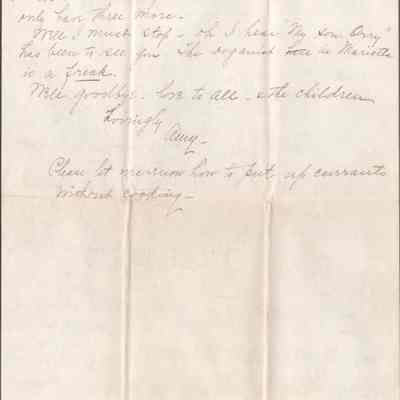 only have three more.
Well I must stop - oh I hear "My son Orry"
has been to see you. The organist here in Marietta
is a freak.
Well goodbye - love to all - & the children
Lovingly
Amy -
Please let me know how to put up currants
without cooking -